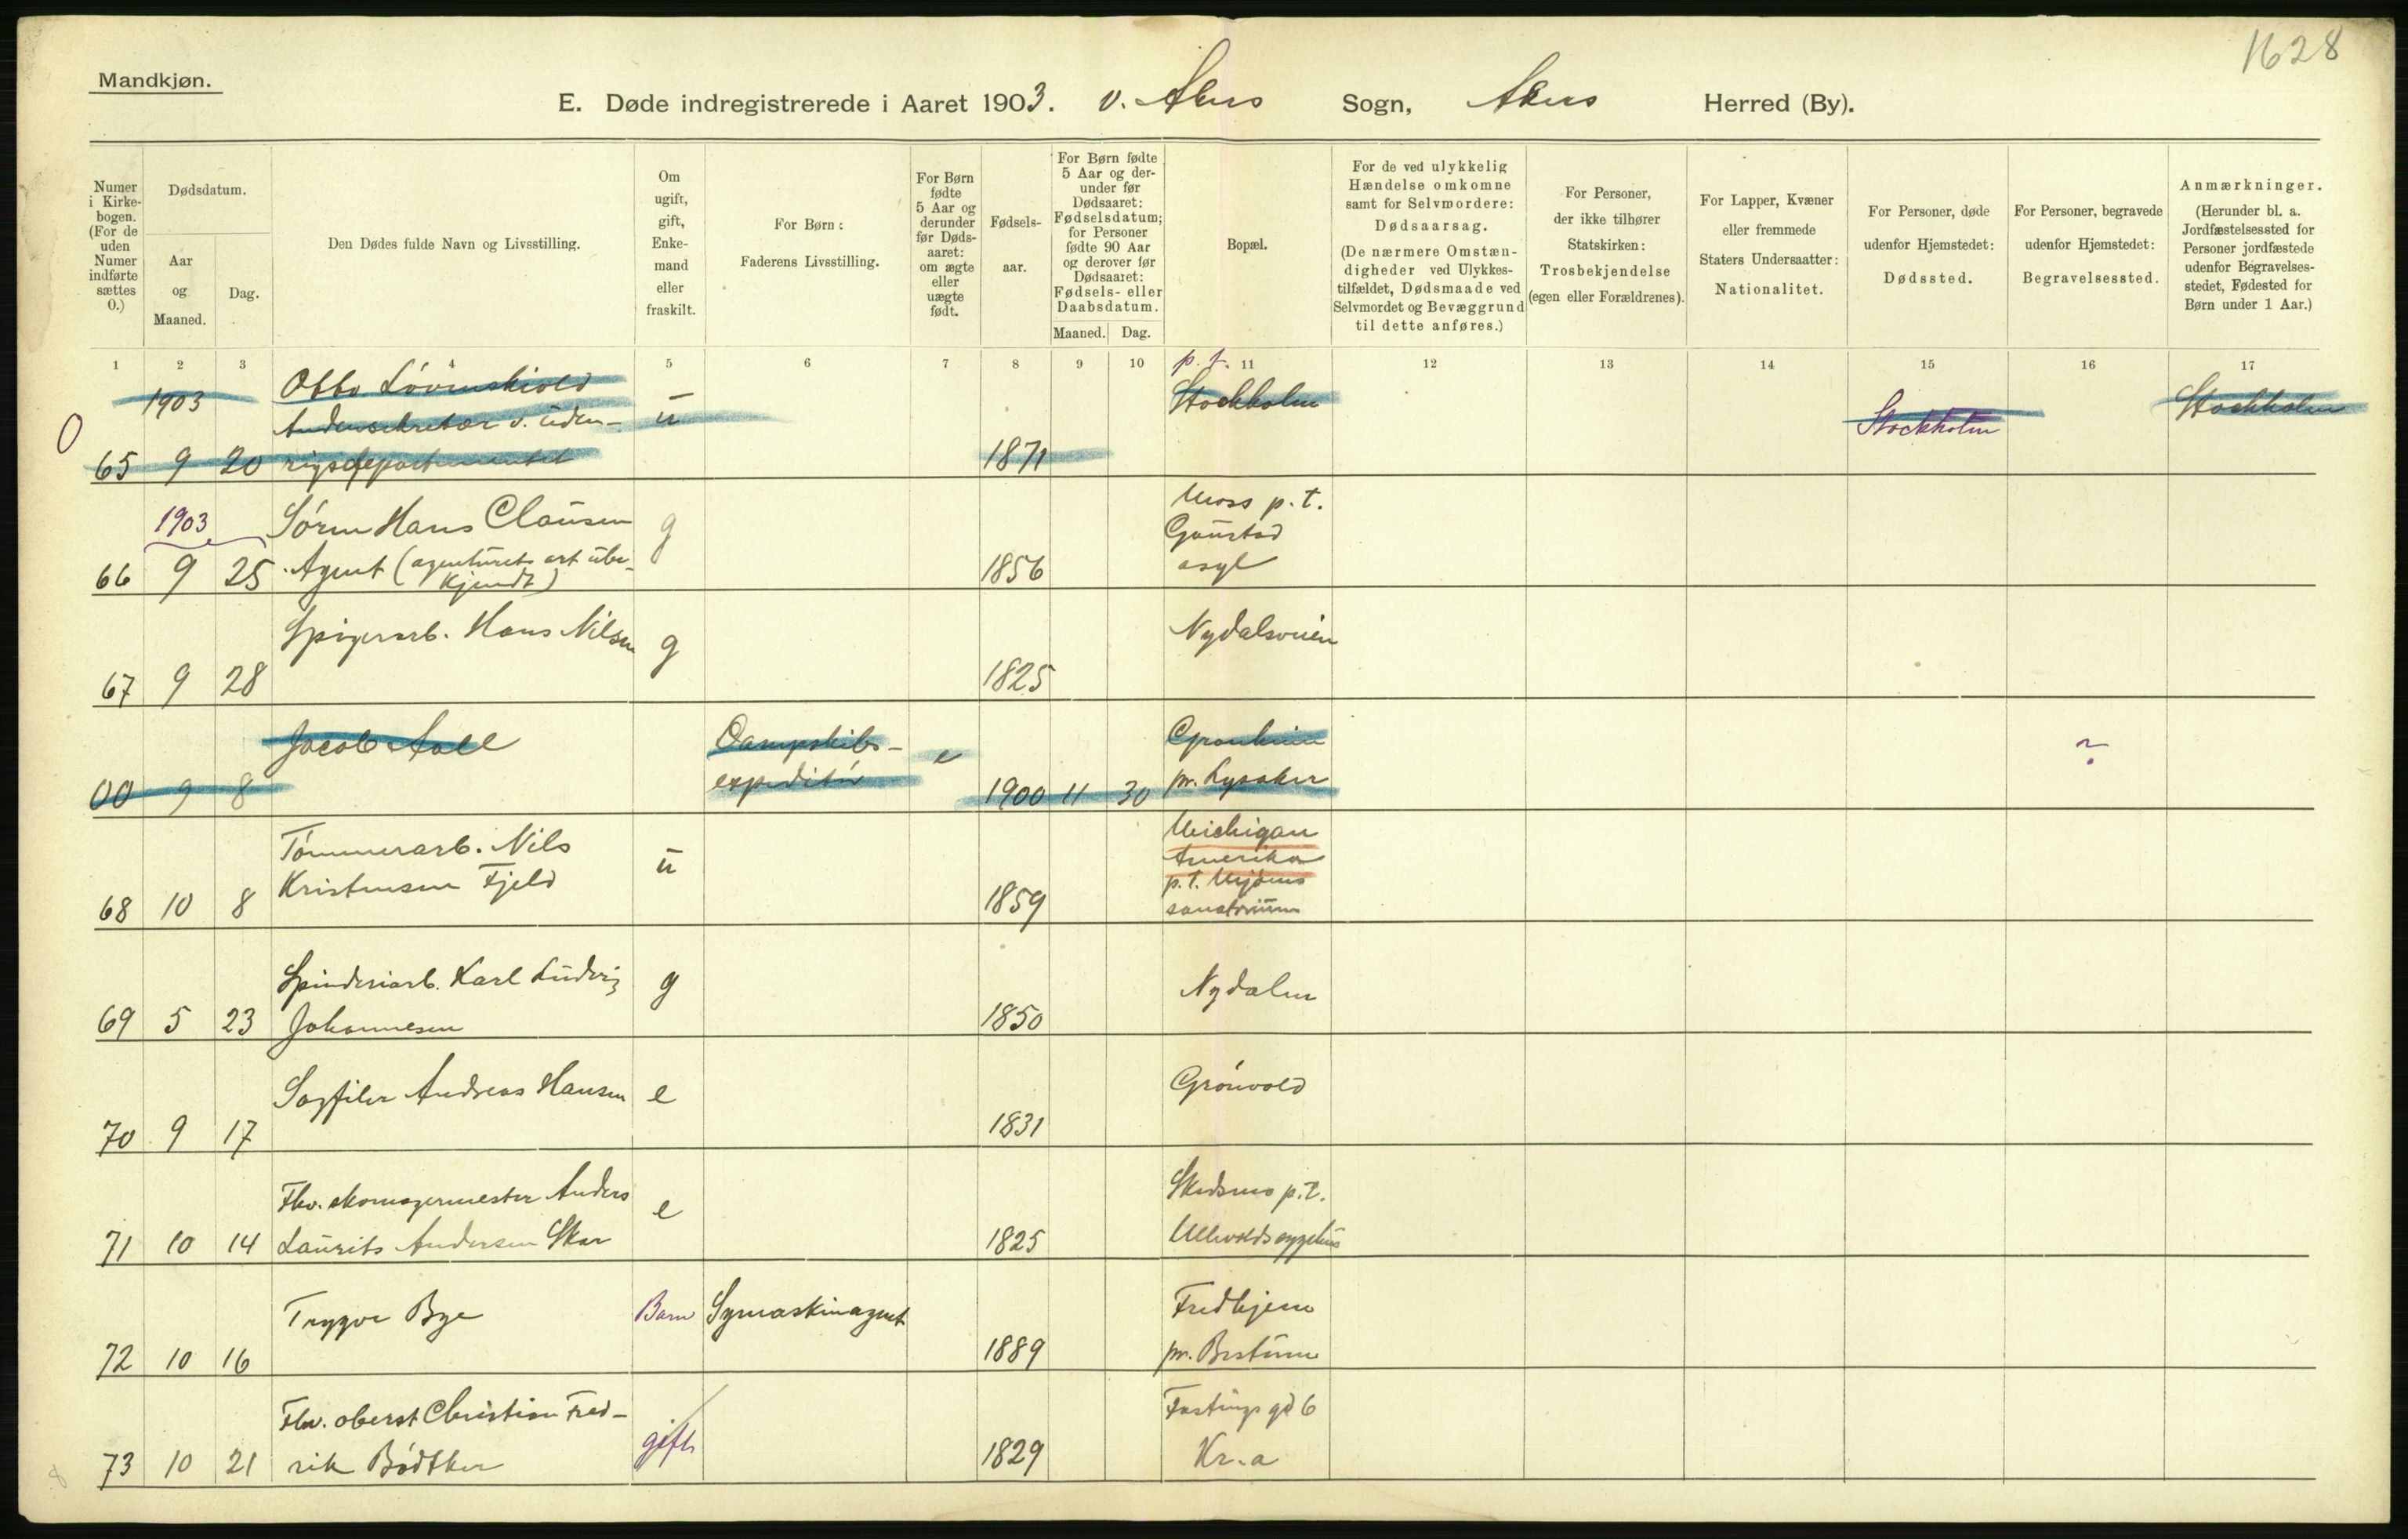 1628
Mandkjøn.
E. Døde indregistrerede i Aaret 1903. V. Akers Sogn, Akers Herred (By).
Numer i Kirkebogen. (For de uden Numer indførte sættes 0.)
Dødsdatum.
Aar og Maaned.
Dag.
Den Dødes fulde Navn og Livsstilling.
Om ugift, gift, Enkemand eller fraskilt.
For Børn: Faderens Livsstilling.
For Børn fødte 5 Aar og derunder før Dødsaaret: om ægte eller uægte født.
Fødselsaar.
For Børn fødte 5 Aar og derunder før Dødsaaret: Fødselsdatum; for Personer fødte 90 Aar og derover før Dødsaaret: Fødsels- eller Daabsdatum.
Maaned. Dag.
Bopæl.
For de ved ulykkelig Hændelse omkomne samt for Selvmordere: Dødsaarsag. (De nærmere Omstændigheder ved Ulykkestilfældet, Dødsmaade ved Selvmordet og Bevæggrund til dette anføres.)
For Personer, der ikke tilhører Statskirken: Trosbekjendelse (egen eller Forældrenes).
For Lapper, Kvæner eller fremmede Staters Undersaatter: Nationalitet.
For Personer, døde udenfor Hjemstedet: Dødssted.
For Personer, begravede udenfor Hjemstedet: Begravelsessted.
Anmærkninger. (Herunder bl. a. Jordfæstelsessted for Personer jordfæstede udenfor Begravelsesstedet, Fødested for Børn under 1 Aar.)
1 2 3 4 5 6 7 8 9 10 11 12 13 14 15 16 17
0 65 1903 9 20 Otto Løvenskiold
Andensekretær v. uden-
rigsdepartementet
ü 1871 p. t.
Stockholm Stockholm Stockholm
66 1903 9 25 Søren Hans Clausen
Agent (agenturets art ube-
kjendt)
g 1856 Moss p. t.
Gaustad
asyl
67 9 28 Spigerarb. Hans Nilsen g 1825 Nydalsveien
00 9 8 Jacob Aall Dampskibs-
expeditør
e 1900 11 30 Granheim
pr. Lysaker
?
68 10 8 Tømmerarb. Nils
Kristensen Fjeld
ü 1859 Michigan
Amerika
p. t. Mjøens
sanatorium
69 5 23 Spinderiarb. Karl Ludvig
Johannesen
g 1850 Nydalen
70 9 17 Sagfiler Andreas Hansen e 1831 Grønvold
71 10 14 Fhv. skomagermester Anders
Laurits Andersen Skar
e 1825 Skedsmo p. t.
Ullevolds sygehus
72 10 16 Trygve Bye Barn Symaskinagent 1889 Fredhjem
pr. Bestum
73 10 21 Fhv. oberst Christian Fred-
rik Bødtker
gift 1829 Fastings gd 6
Kr.a
8